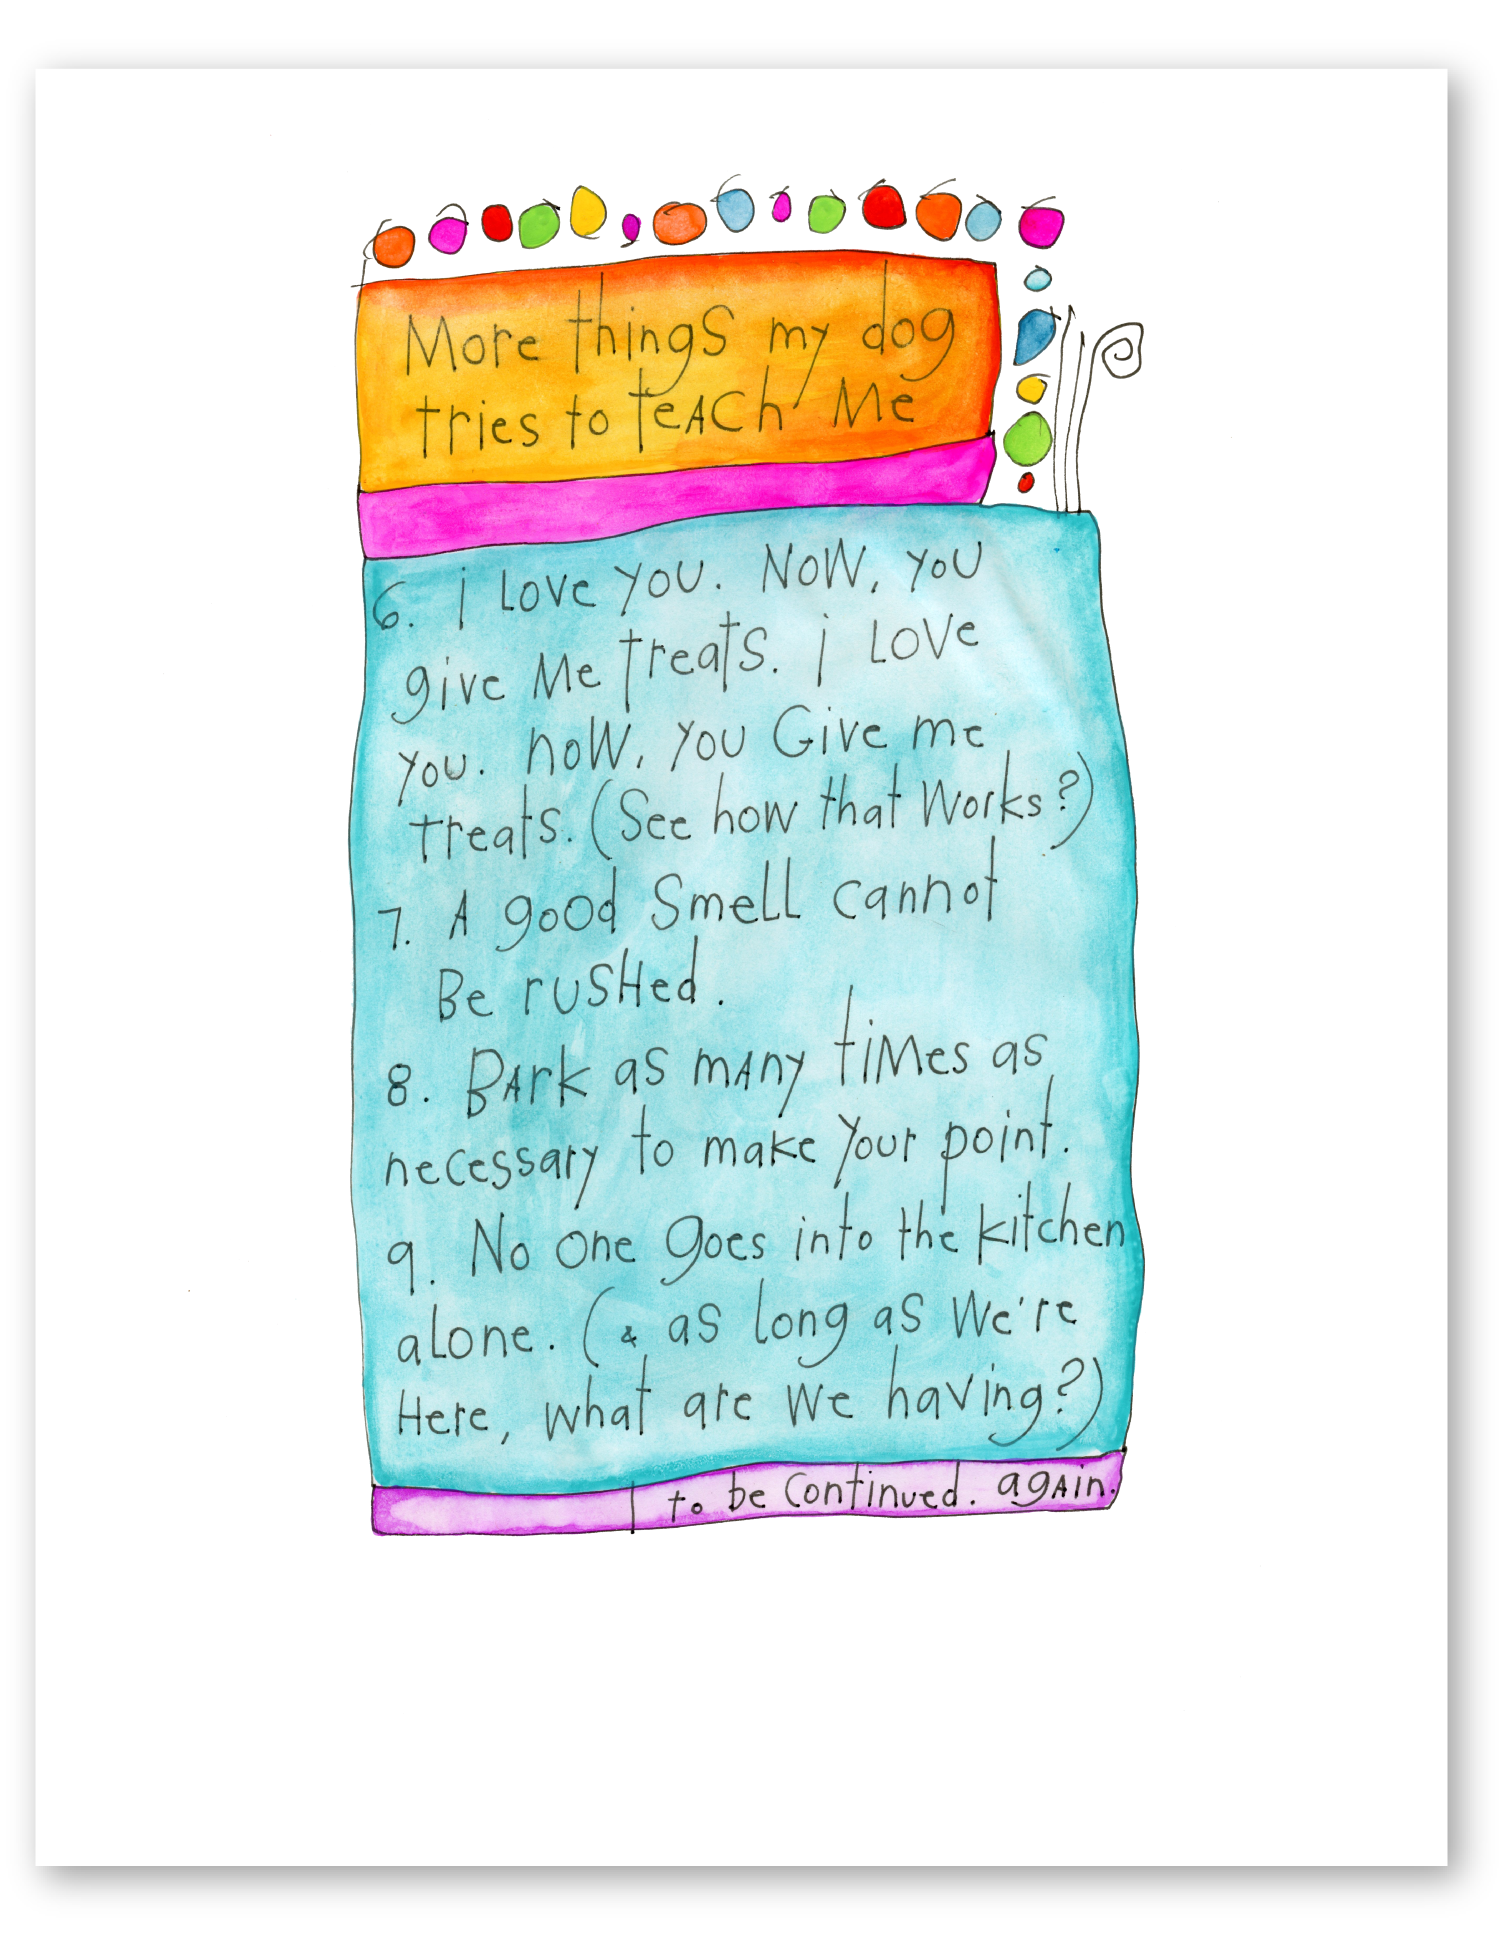 More things my dog
tries to teach Me
6. i Love you. Now, you
give Me treats. i Love
you. now, you Give me
treats. (See how that Works?)
7. A good Smell cannot
Be rusHed.
8. BArk as mAny tiMes as
necessary to make Your point.
9. No one goes into the kitchen
aLone. (& as long as We're
Here, what are we having?)
to be Continued. agAin.